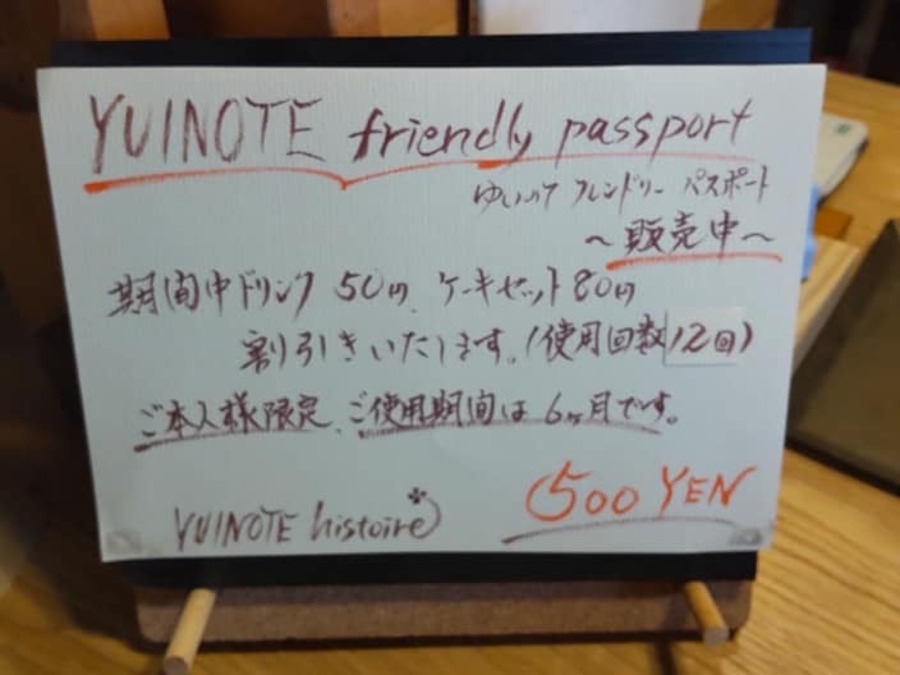 YUINOTE friendly passport
ゆいのて フレンドリー パスポート
～販売中～
期間中ドリンク 50円、ケーキセット80円
割引きいたします。(使用回数12回)
ご本人様限定、ご使用期間は 6ヶ月です。
500 YEN
YUINOTE histoire